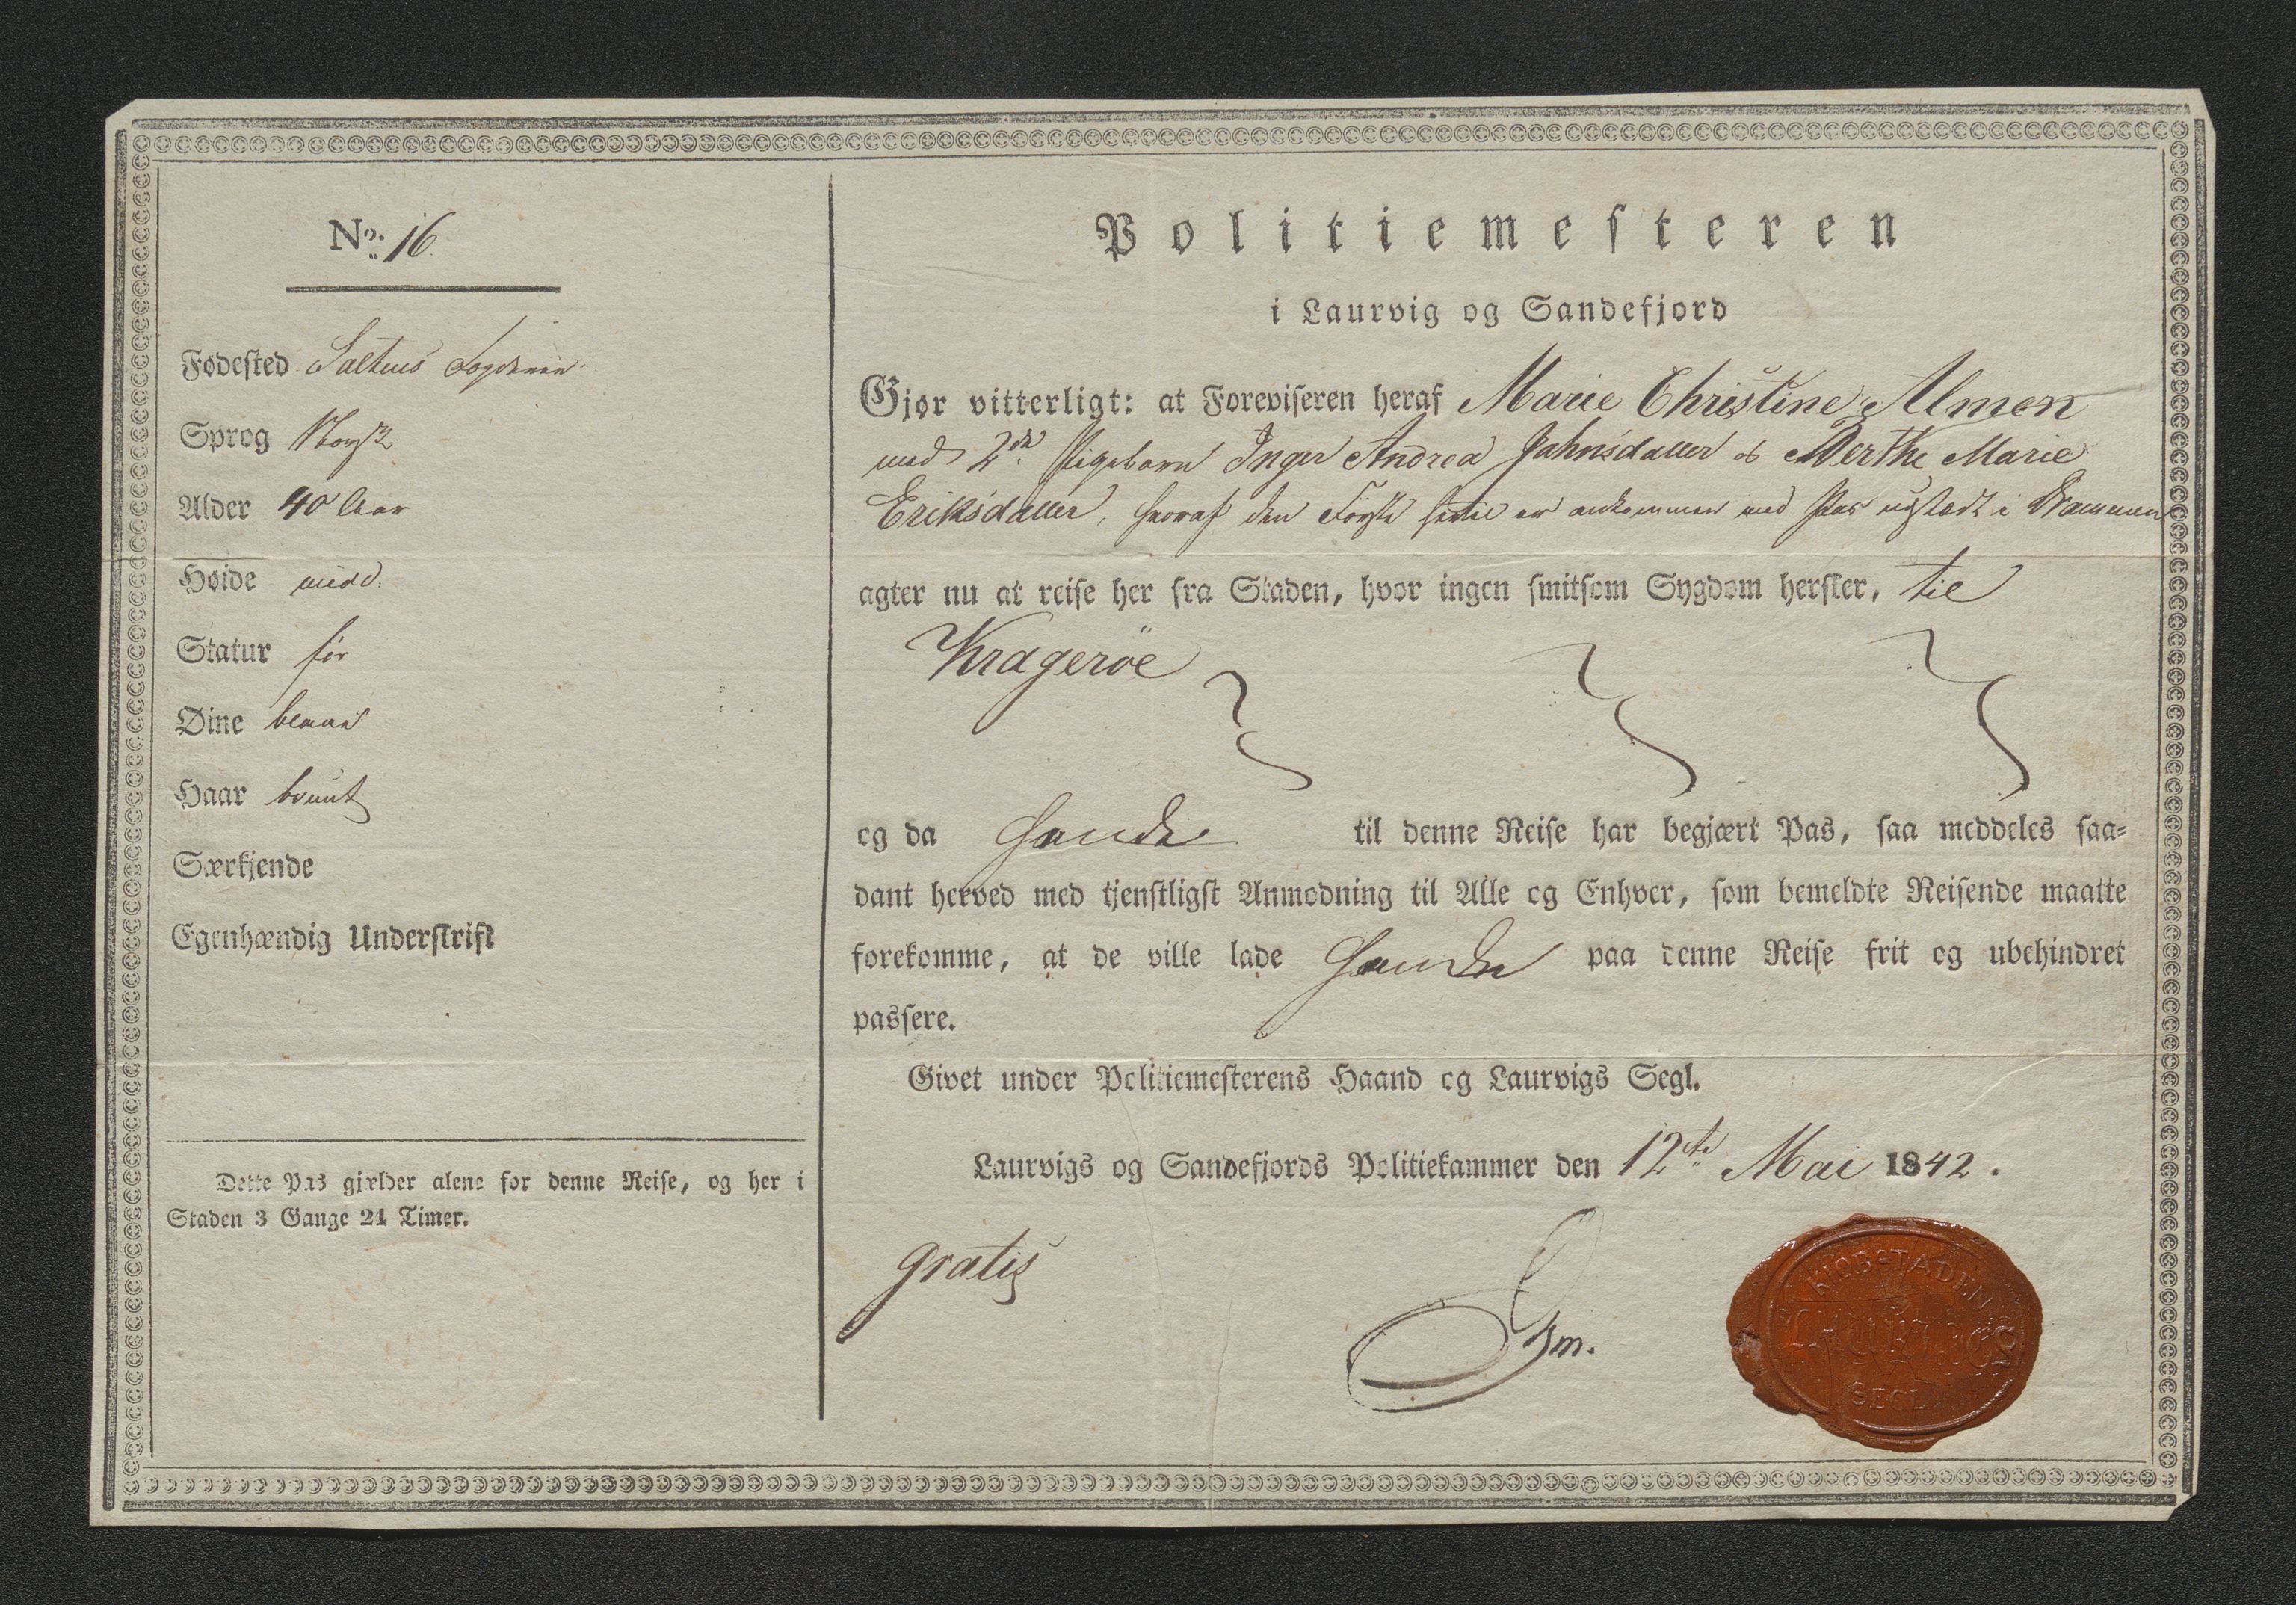 No. 16
Fødested Saltens Fogderie
Sprog Norsk
Alder 40 Aar
Høide midd:
Statur før
Øine blaae
Haar bruunt
Særkjende
Egenhændig Underskrift
Dette Pas gjælder alene for denne Reise, og her i
Staden 3 Gange 24 Timer.
Politiemesteren
i Laurvig og Sandefjord
Gjør vitterligt: at Foreviseren heraf Marie Christine Almen
med 2de Pigebørn Inger Andrea Jahnsdatter og Berthe Marie
Eriksdatter, hvoraf den Første hertil er ankommen med Pas udstædt i Drammen
agter nu at reise her fra Staden, hvor ingen smitsom Sygdom hersker, til
Kragerøe
og da hende til denne Reise har begjært Pas, saa meddeles saa-
dant herved med tjenstligst Anmodning til Alle og Enhver, som bemeldte Reisende maatte
forekomme, at de ville lade hende paa denne Reise frit og ubehindret
passere.
Givet under Politiemesterens Haand og Laurvigs Segl.
Laurvigs og Sandefjords Politiekammer den 12te Mai 1842.
gratis
KIØBSTADEN
LAURVIGS
SEGL